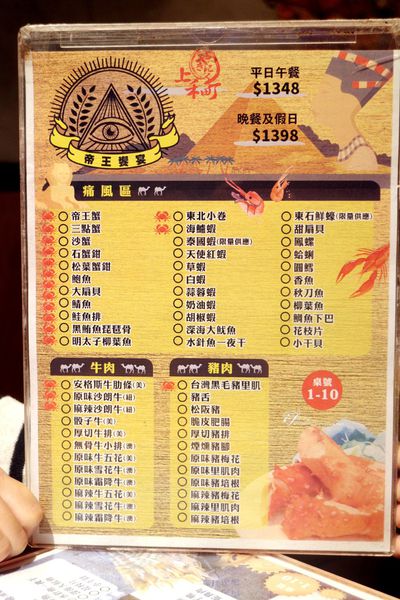 紫
上禾町
平日午餐
$1348
晚餐及假日
$1398
帝王饗宴
痛風區
帝王蟹
三點蟹
沙蟹
石蟹鉗
松葉蟹鉗
鮑魚
大扇貝
鯖魚
鮭魚排
黑鮪魚琵琶骨
明太子柳葉魚
東北小卷
海鱸蝦
泰國蝦(限量供應)
天使紅蝦
草蝦
白蝦
蒜蓉蝦
奶油蝦
胡椒蝦
深海大魷魚
水針魚一夜干
東石鮮蠔(限量供應)
甜扇貝
鳳螺
蛤蜊
圓鱈
香魚
秋刀魚
柳葉魚
鯛魚下巴
花枝片
小干貝
牛肉
安格斯牛肋條(美)
原味沙朗牛(紐)
麻辣沙朗牛(紐)
骰子牛(美)
厚切牛排(美)
無骨牛小排(澳)
原味牛五花(美)
原味雪花牛(澳)
原味霜降牛(澳)
麻辣牛五花(美)
麻辣雪花牛(澳)
麻辣霜降牛(澳)
豬肉
台灣黑毛豬里肌
豬舌
松阪豬
脆皮肥腸
厚切豬排
煙燻豬腳
原味豬梅花
原味里肌肉
原味豬培根
麻辣豬梅花
麻辣里肌肉
麻辣豬培根
桌號
1-10